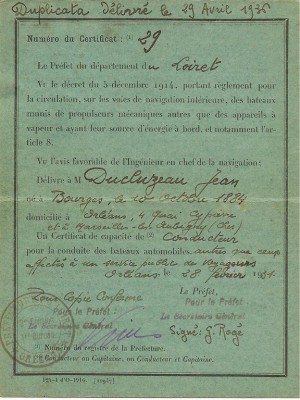 Duplicata délivré le 29 Avril 1936
Numéro du Certificat: (1) 29
Le Préfet du département du Loiret
Vu le décret du 5 décembre 1914, portant règlement pour
la circulation, sur les voies de navigation intérieure, des bateaux
munis de propulseurs mécaniques autres que des appareils à
vapeur et ayant leur source d'énergie à bord, et notamment l'ar-
ticle 8.
Vu l'avis favorable de l'Ingénieur en chef de la navigation;
Délivre à M Ducluzeau Jean
né à Bourges, le 10 octobre 1884
domicilié à Orléans, 4 Quai Cypierre
et à Marseilles-les-Aubigny (Cher)
Un Certificat de capacité de (2) Conducteur
pour la conduite des bateaux automobiles autres que ceux
affectés à un service public de voyageurs
Orléans le 28 février 1931
Pour copie conforme Le Préfet,
Pour le Préfet Pour le Préfet
Le Secrétaire Général Le Secrétaire Général
Signé: G. Rogé
(1) Numéro du registre de la Préfecture.
(2) Conducteur ou Capitaine, ou Conducteur et Capitaine.